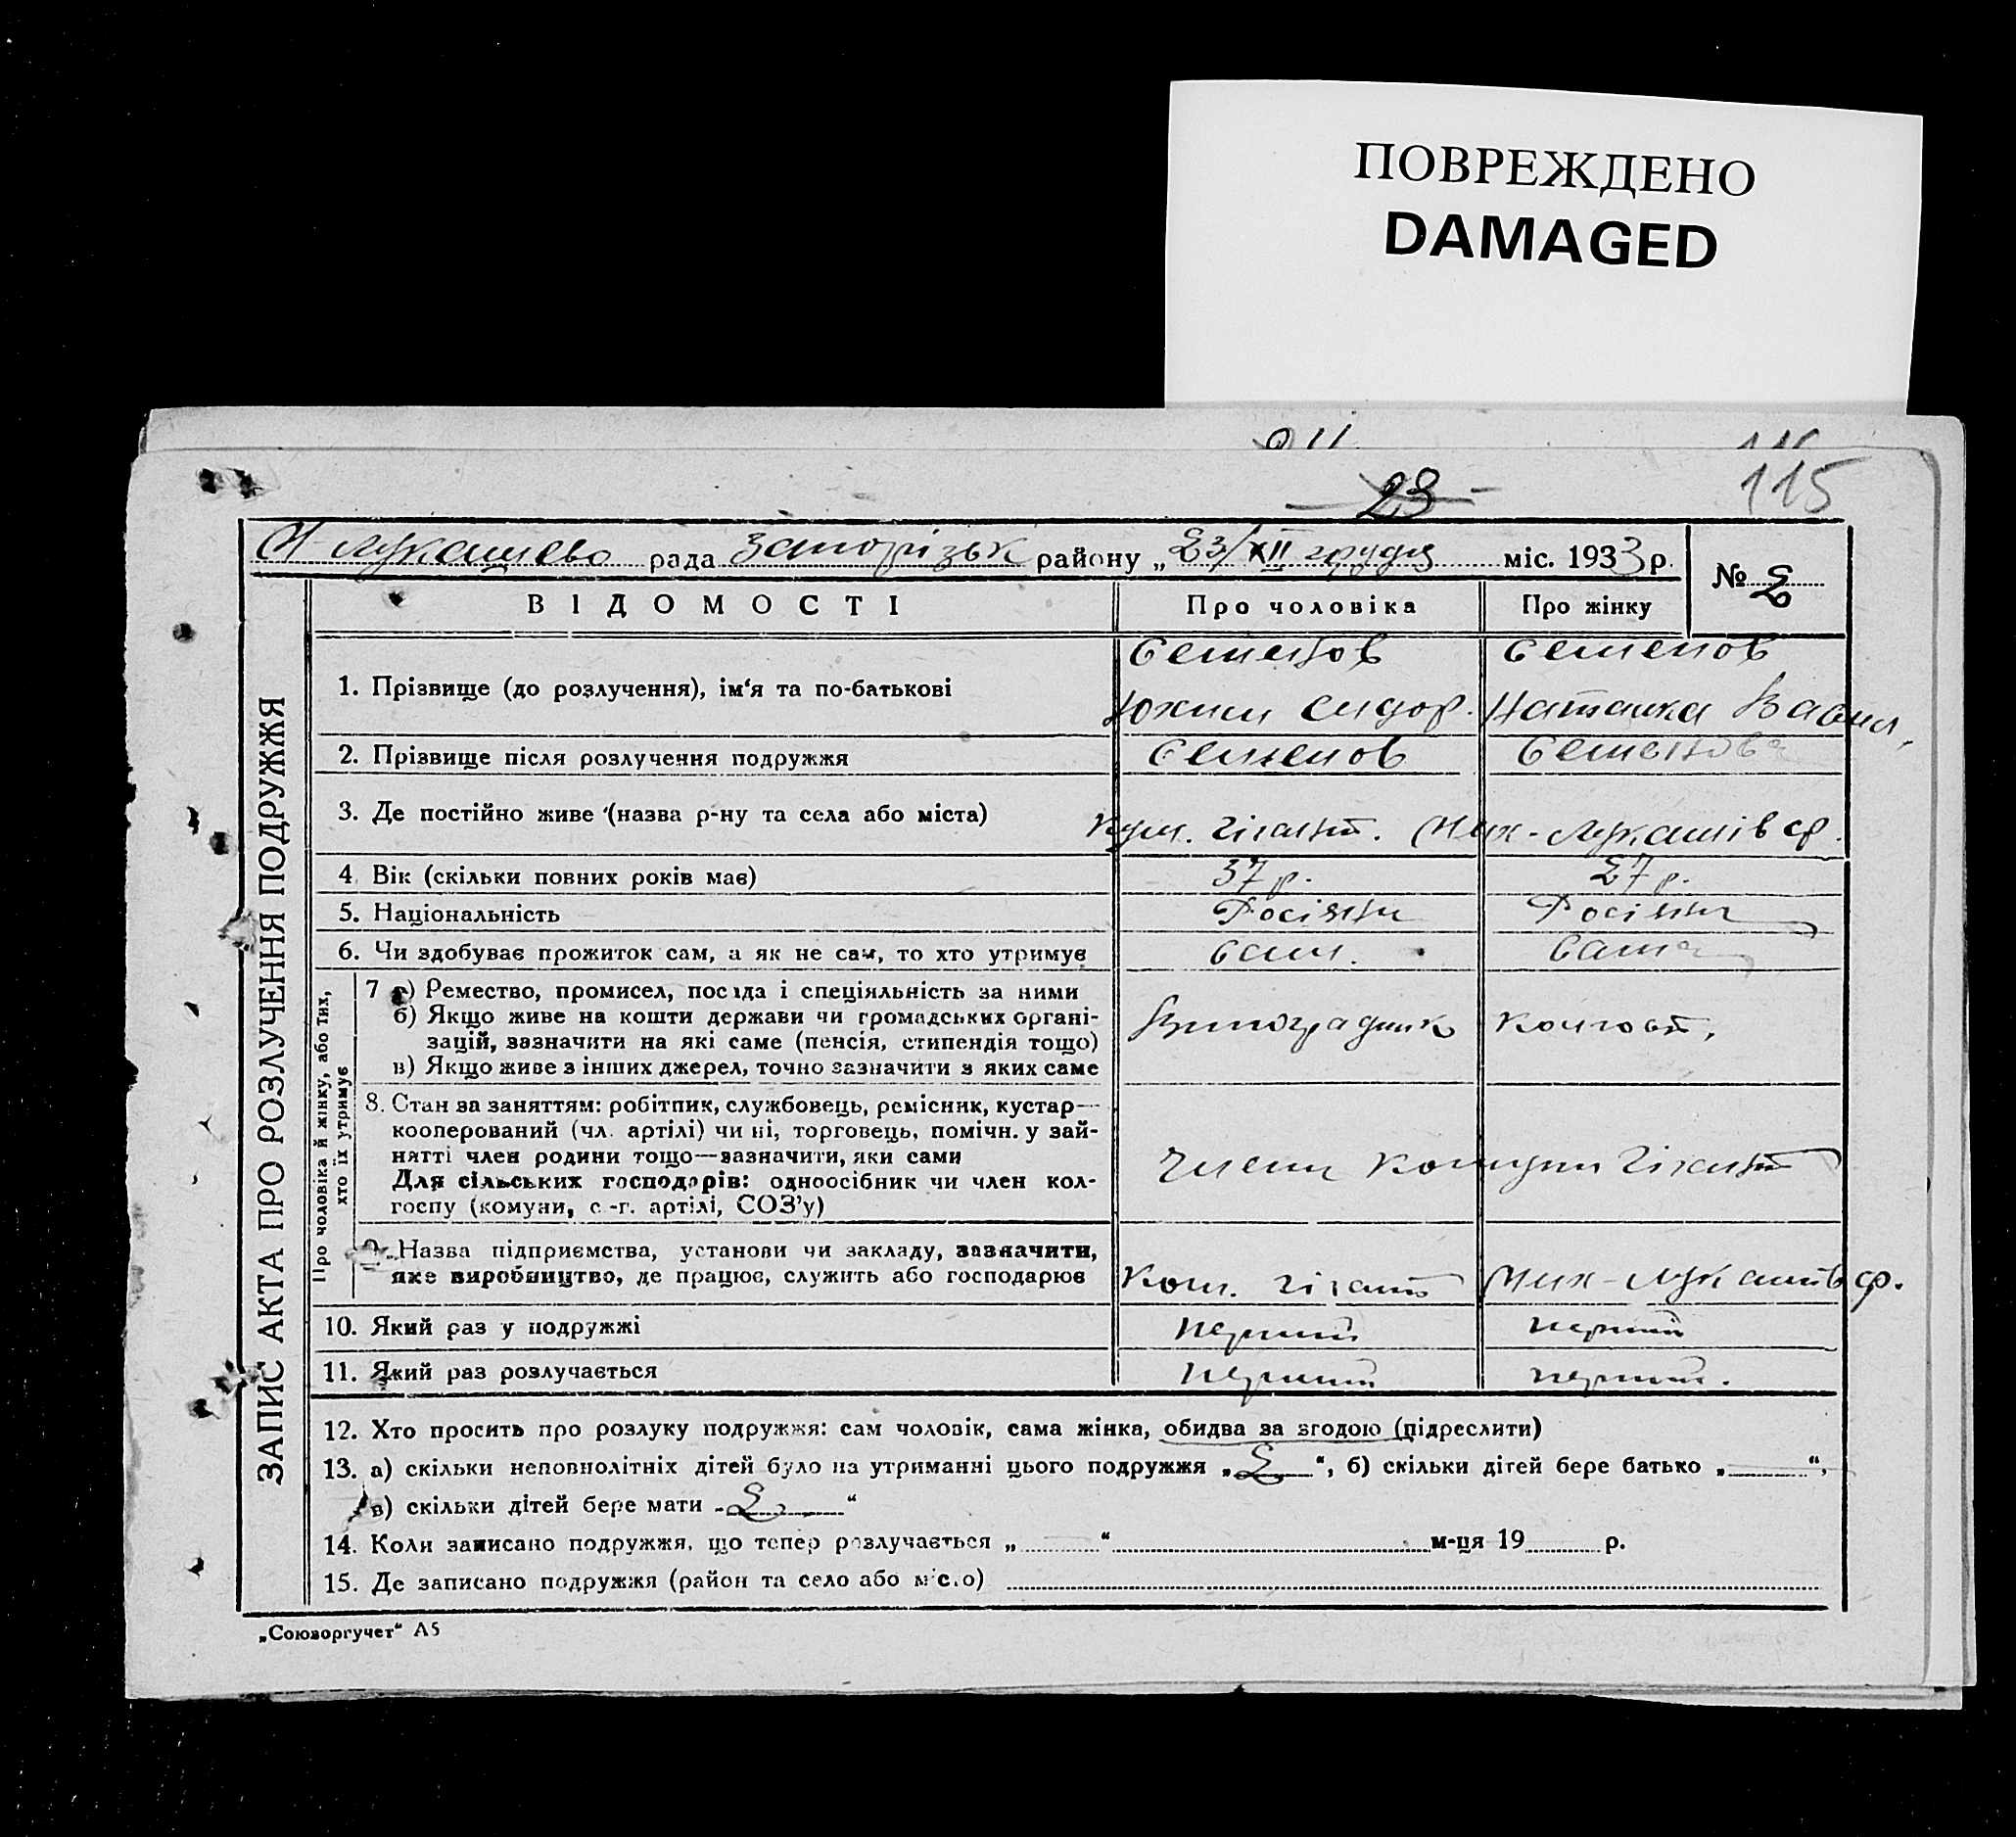 ПОВРЕЖДЕНО
DAMAGED
115
23
М Лукашево рада Запорізьк району „23/XII грудня міс. 1933 р. № 2
ВІДОМОСТІ Про чоловіка Про жінку
Семенов Семенов
1. Прізвище (до розлучення), ім‘я та по-батькові
Юхим Сидор. Наталка Васил.
2. Прізвище після розлучення подружжя Семенов Семенова
3. Де постійно живе (назва р-ну та села або міста) Ком. Гігант. Мих-Лукашів ср.
4 Вік (скільки повних років має) 37 р. 27 р.
5. Національність Росіян Росіян
6. Чи здобуває прожиток сам, а як не сам, то хто утримує сам. сама
7 а) Ремество, промисел, посада і спеціяльність за ними
б) Якщо живе на кошти держави чи громадських органі-
зацій, зазначити на які саме (пенсія, стипендія тощо) Виноградник
в) Якщо живе з інших джерел, точно зазначити з яких саме
8. Стан за заняттям: робітник, службовець, ремісник, кустар—
кооперований (чл. артілі) чи ні, торговець, помічн. у зай-
нятті член родини тощо—зазначити, яки сами
Для сільських господорів: одноосібник чи член кол-
госпу (комуни, с.-г. артілі, СОЗ’у)
Члени Комуни Гігант
9. Назва підприємства, установи чи закладу, зазначити,
яке виробництво, де працює, служить або господарює Ком. Гігант Мих-Лукашів ср.
10. Який раз у подружжі перший перший
11. Який раз розлучається перший перший.
12. Хто просить про розлуку подружжя: сам чоловік, сама жінка, обидва за згодою (підреслити)
13. а) скільки неповнолітніх дітей було на утриманні цього подружжя „2“, б) скільки дітей бере батько „ “,
в) скільки дітей бере мати „2“
14. Коли записано подружжя, що тепер розлучається „ “ м-ця 19 р.
15. Де записано подружжя (район та село або місто)
„Союзоргучет“ А5
ЗАПИС АКТА ПРО РОЗЛУЧЕННЯ ПОДРУЖЖЯ
Про чоловіка й жінку, або тих,
хто їх утримує